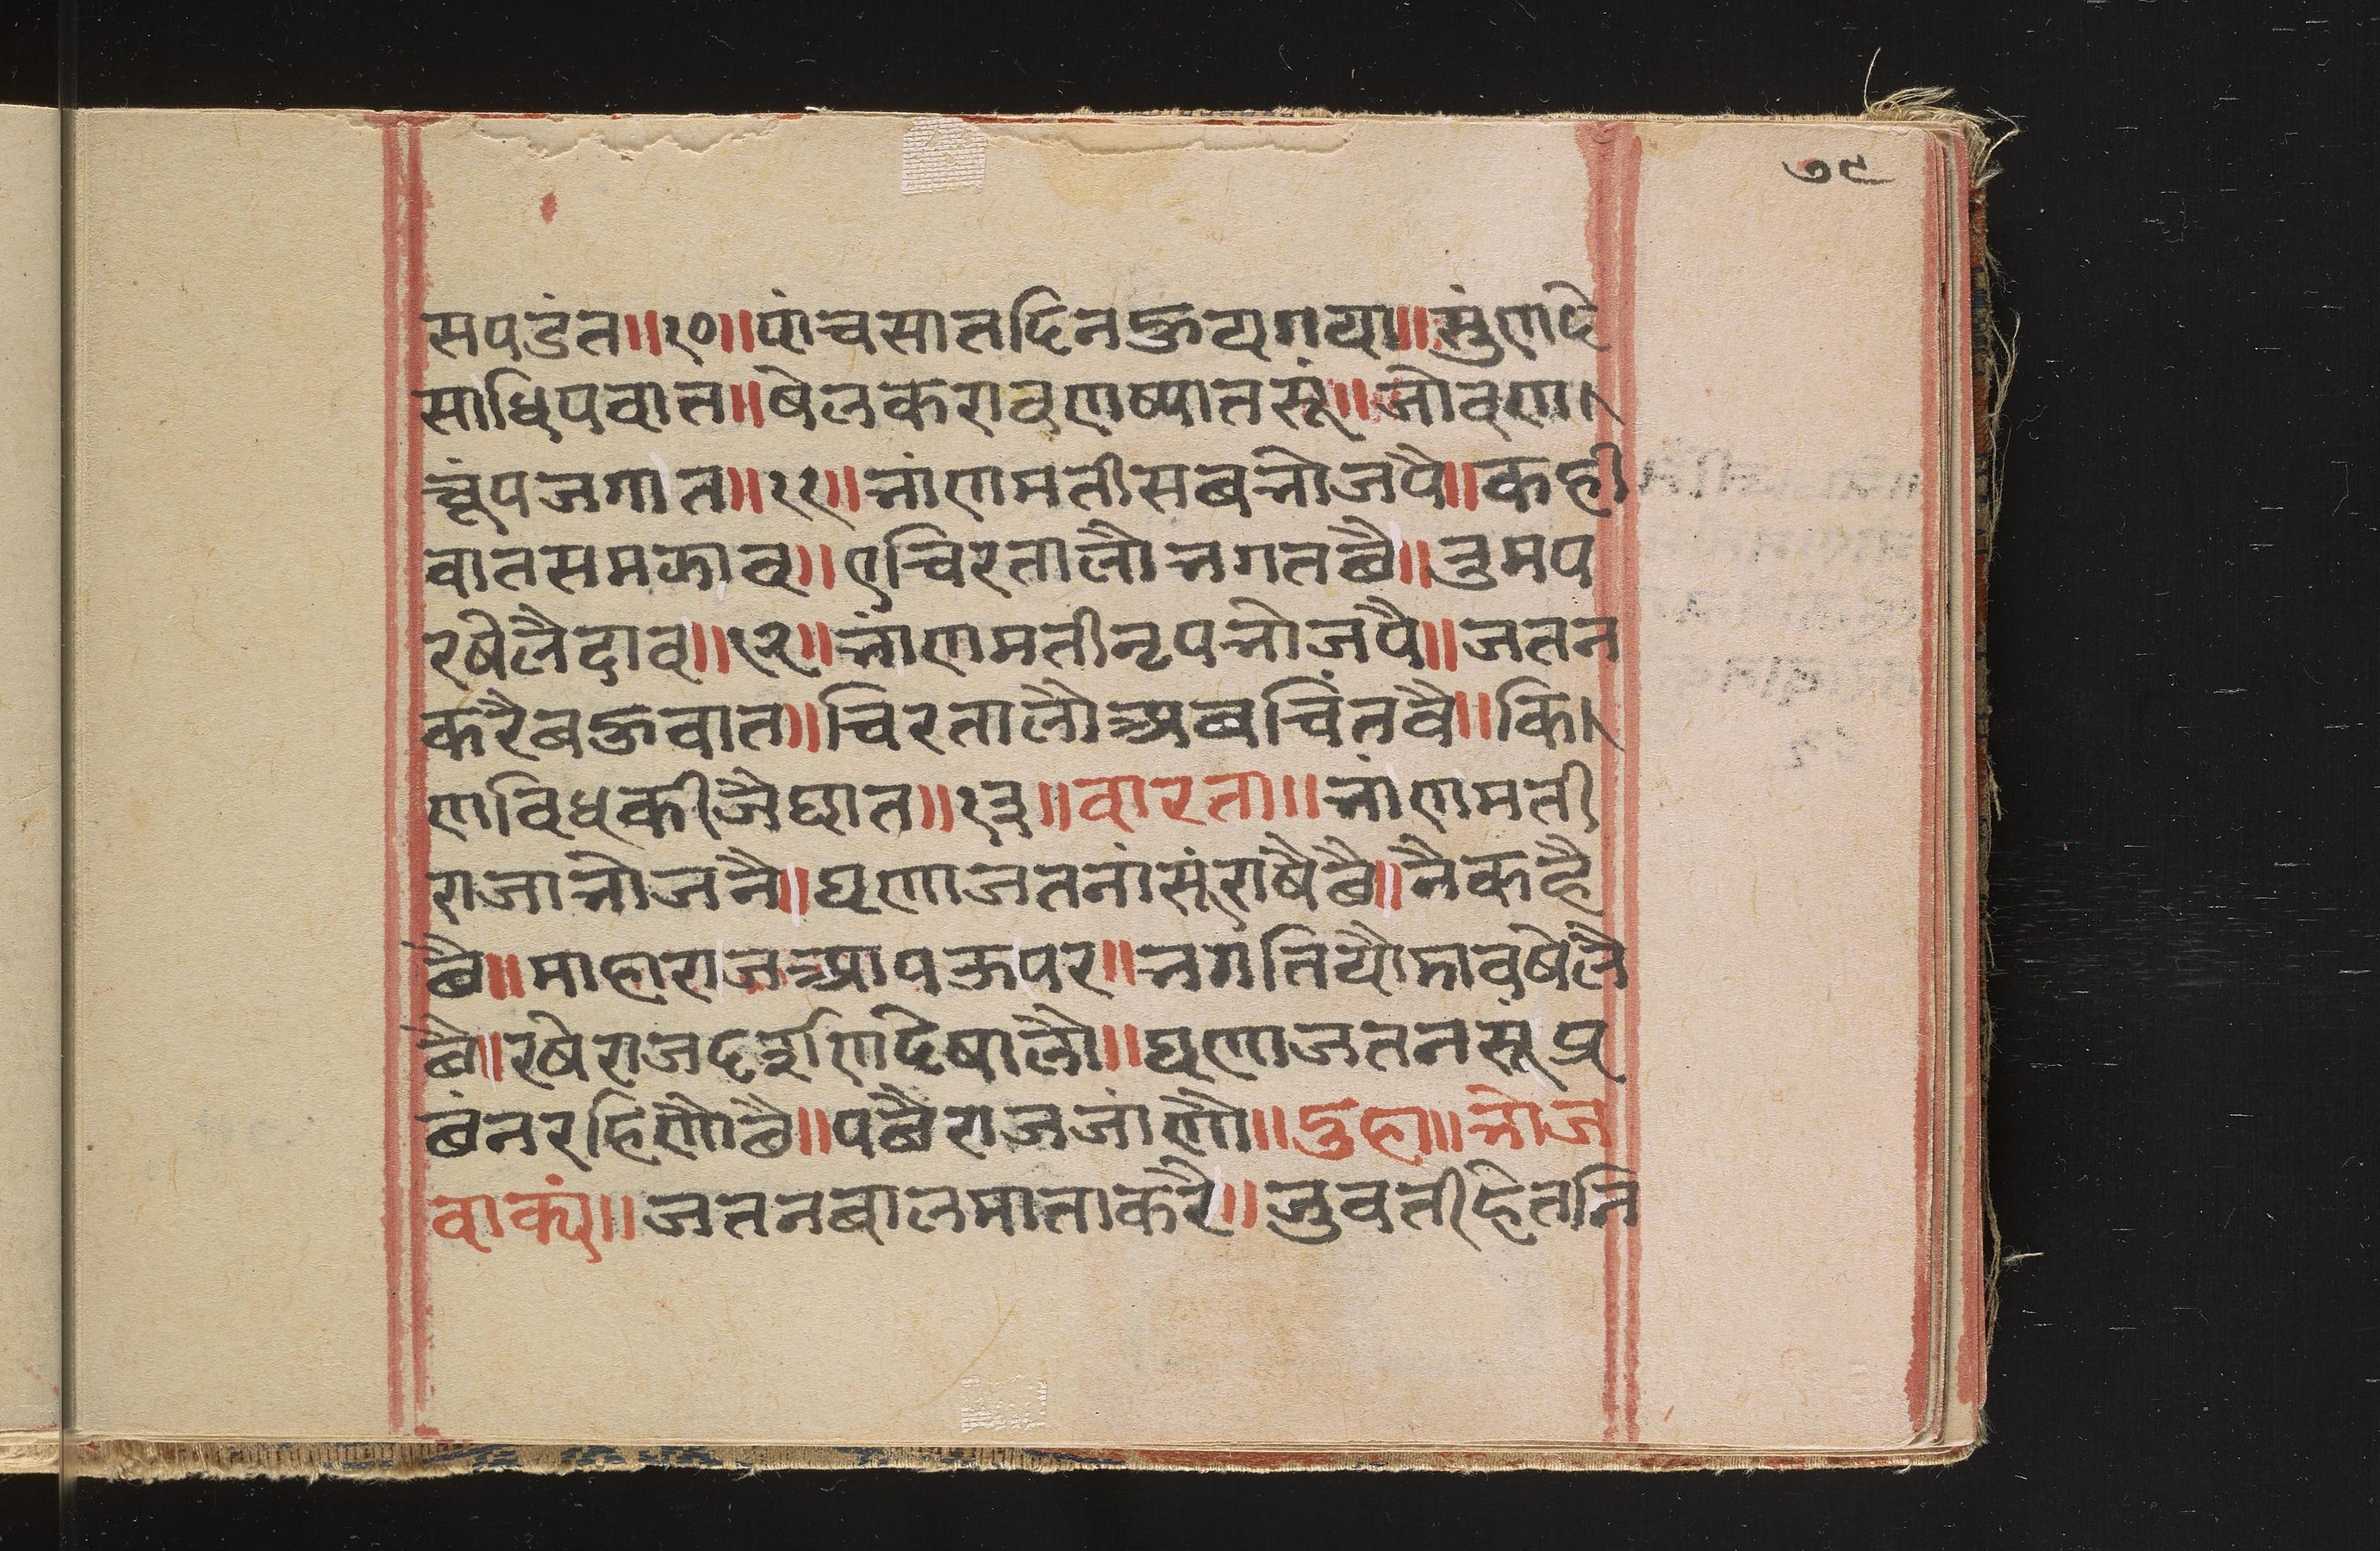 ७९
सपडंत॥१०॥पांचसातदिनऊयगया॥सुंणदे
साधिपवात॥षेलकरावणष्यातसूं॥भोवणा
चूंपजगात॥११॥भांणमतीसबभोजपै॥कही
वातसमझाव॥एचिरतालौभगतछै॥तुमप
रषेलैदाव॥१२॥भांणमतीनृपभोजपै॥जतन
करैबऊवात॥चिरतालौअबचिंतवै॥कि
णविधकीजैघात॥१३॥वारता॥भांणमती
राजाभोजनै॥घणाजतनांसूंराषैछै॥नैकहै
छै॥माहाराजआपऊपर॥भगतियौदावषेलै
छै॥रषेराजदईणिदेषालौ॥घणाजतनसूंप्र
बंनरहिणौछै॥पछैराजजांणौ॥दुहा॥भोज
वाक्यं॥जतनबालमाताकरै॥जुवतीहेतनि